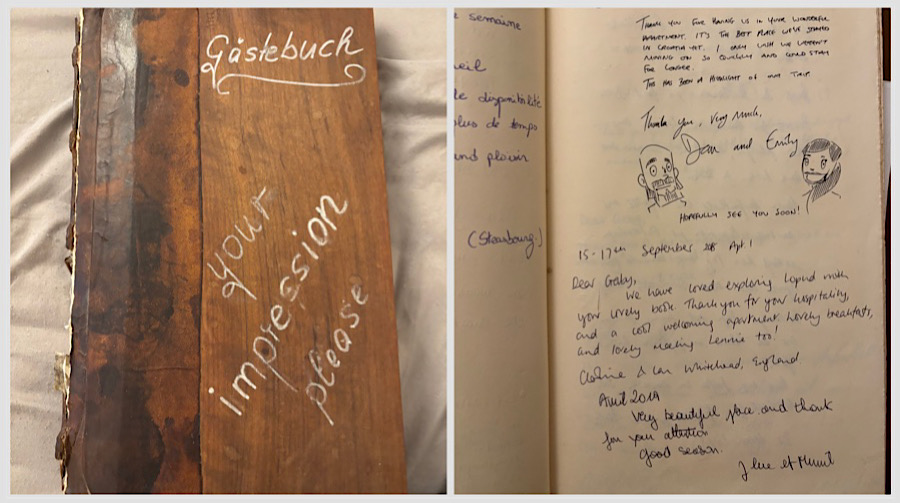 Gästebuch
your
impression
please
semaine
de disponibilité
plus de temps
grand plaisir
(Strasbourg.)
THANK YOU FOR HAVING US IN YOUR WONDERFUL
APARTMENT. IT'S THE BEST PLACE WE'VE STAYED
IN CROATIA YET. I ONLY WISH WE WEREN'T
MOVING ON SO QUICKLY AND COULD STAY
FOR LONGER.
THIS HAS BEEN A HIGHLIGHT OF OUR TRIP
Thank you, very much,
and Emily
HOPEFULLY SEE YOU SOON!
15-17th September Apt.1
Dear
We have loved exploring Lopud with
your lovely book. Thank you for your hospitality,
and a cool welcoming apartment. Lovely breakfasts,
and lovely meeting Lennie too!
Whitehead, England
Avril 2019
Very beautiful place and thank
for your attention
good season.